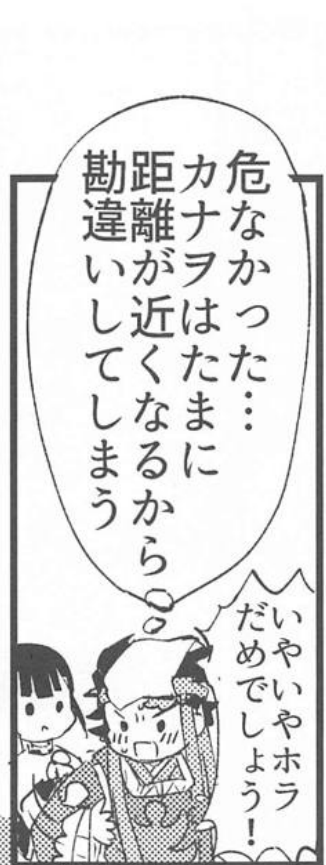 危なかった…
カナヲはたまに
距離が近くなるから
勘違いしてしまう
いやいやホラ
だめでしょう！